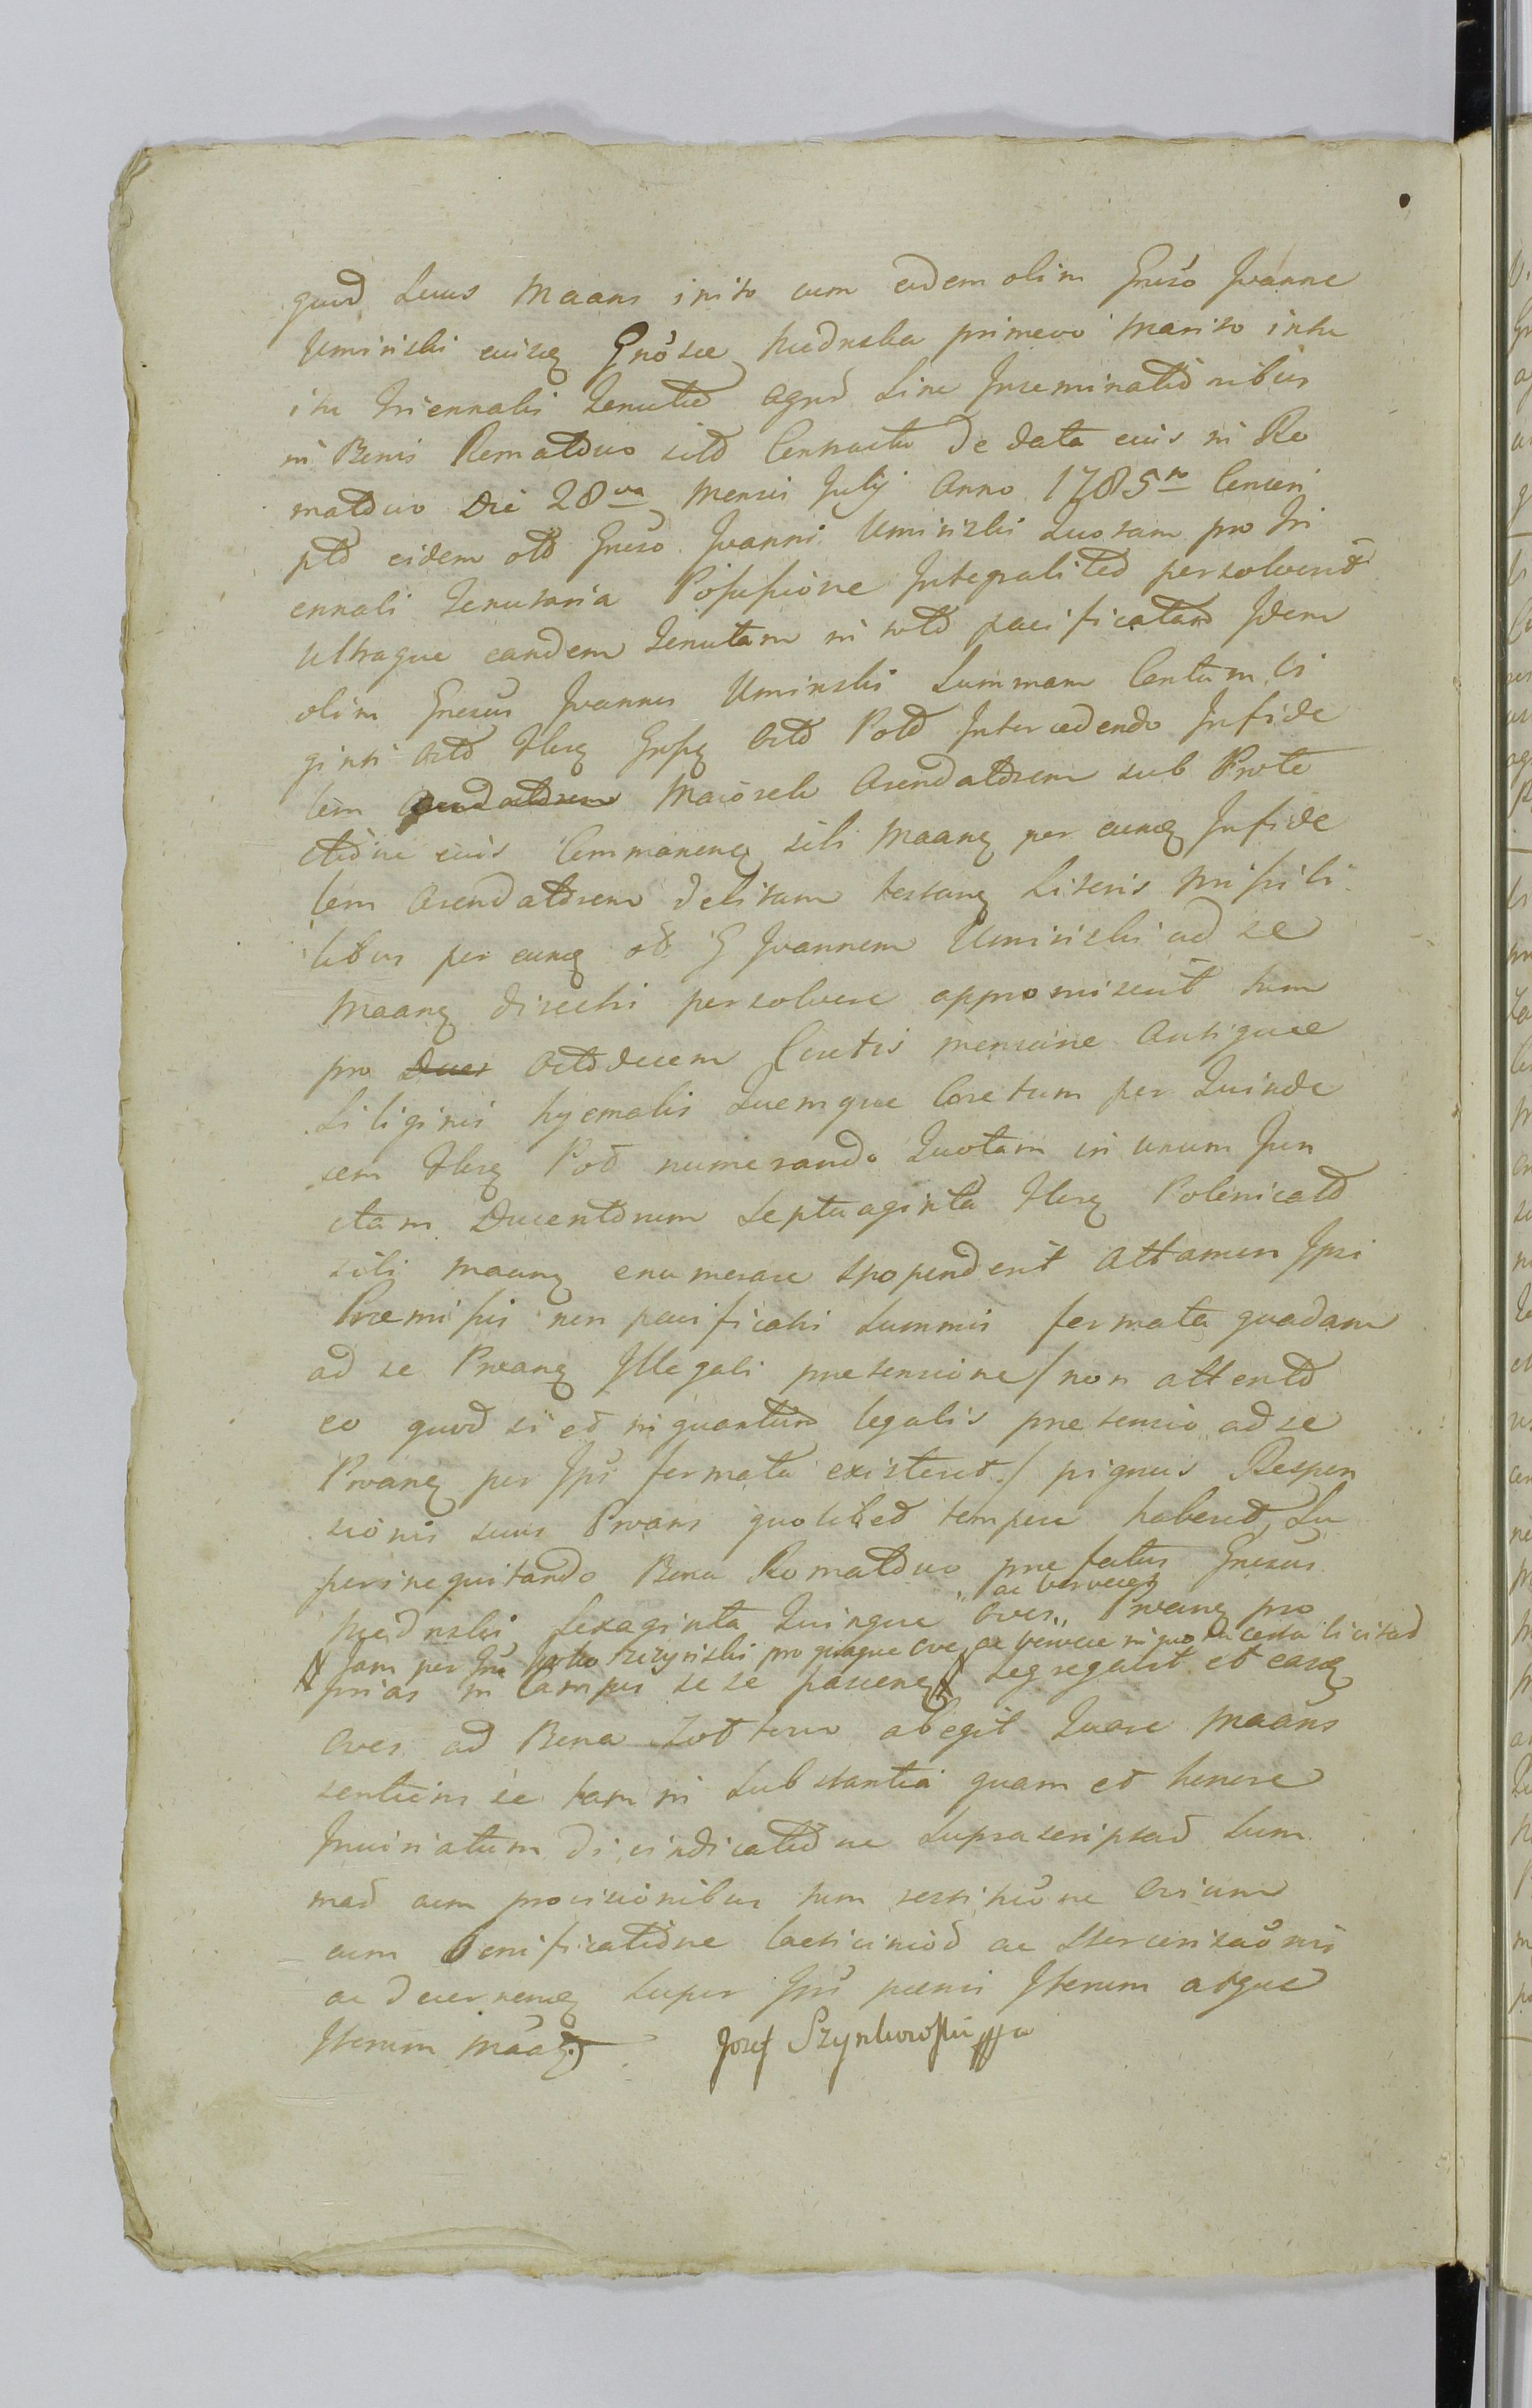 quod Suus Maans inito cum eodem olim Gneso Joanne
Uminski eiusq Gnosae Mednska primevo Marito intu
itu Triennalis Tenutae agrod Sine Inseminationibus
in Bonis Romatowo sitd Contractu De data eius in Ro
matowo Die 28va Mensis Julij Anno 1785to Conscri
ptd eidem old Gneso Joanni Uminski Quotam pro Tri
ennali Tenutaria Possessione Integralited persolverit
Ultraque eandem Tenutam in totd pacificatam Idem
olim Gnesus Joannes Uminski Summam Centum Vi
ginti octd Flnq Gnsq octd Pold Intercedendo Infide
lem Arendatorem Maioseh Arendatorem sub Prote
ctione eius Commanenq sibi Maanq per eunq Infide
lem Arendatorem debitam testanq Literis Missili
libus per eunq od G Joannem Uminiski ad se
Maanq directis persolvere appromiserit tum
pro Duos octodecem Coretis mensurae Antiquae
Siliginis hyemalis Quemque Coretum per Quinde
cem Flnq Pod numerando Quotam in unum Jun
ctam Ducentorum Septuaginta Flnq Polonicald
sibi maanq enumerare spoponderit Attamen Ipsi
Praemissis non pacificatis Summis formata quadam
ad se Proanq Illegali praetensione / non attentd
eo quod si et inquantum legalis praetensio ad se
Proanq per Ips formata existeret / pignus Respon
sionis suus Proans quolibet tempore haberet, Su
perinequitando Bona Romatowo praefatus Gnesus
Mednski Sexaginta Quinque Oves ,, ac verveces ,, Proanq pro
# Jam per Gn Szczyniski pro quaque ove ac vervece in quo in certa licitad
prias in Campis sese pascenq # segregavit et easq
Oves ad Bona abegit Quare Maans
sentiens se tam in Substantia quam et honore
Iniuriatum Di vindicatione Suprascriptad Sum
mad cum provisionibus tum restitutione Ovium
cum Bonificatione lacticiniod ac Stercorisaonis
ac decernenq super Ips poenis Iterum atque
Iterum Maaq Jozef Szynkowski